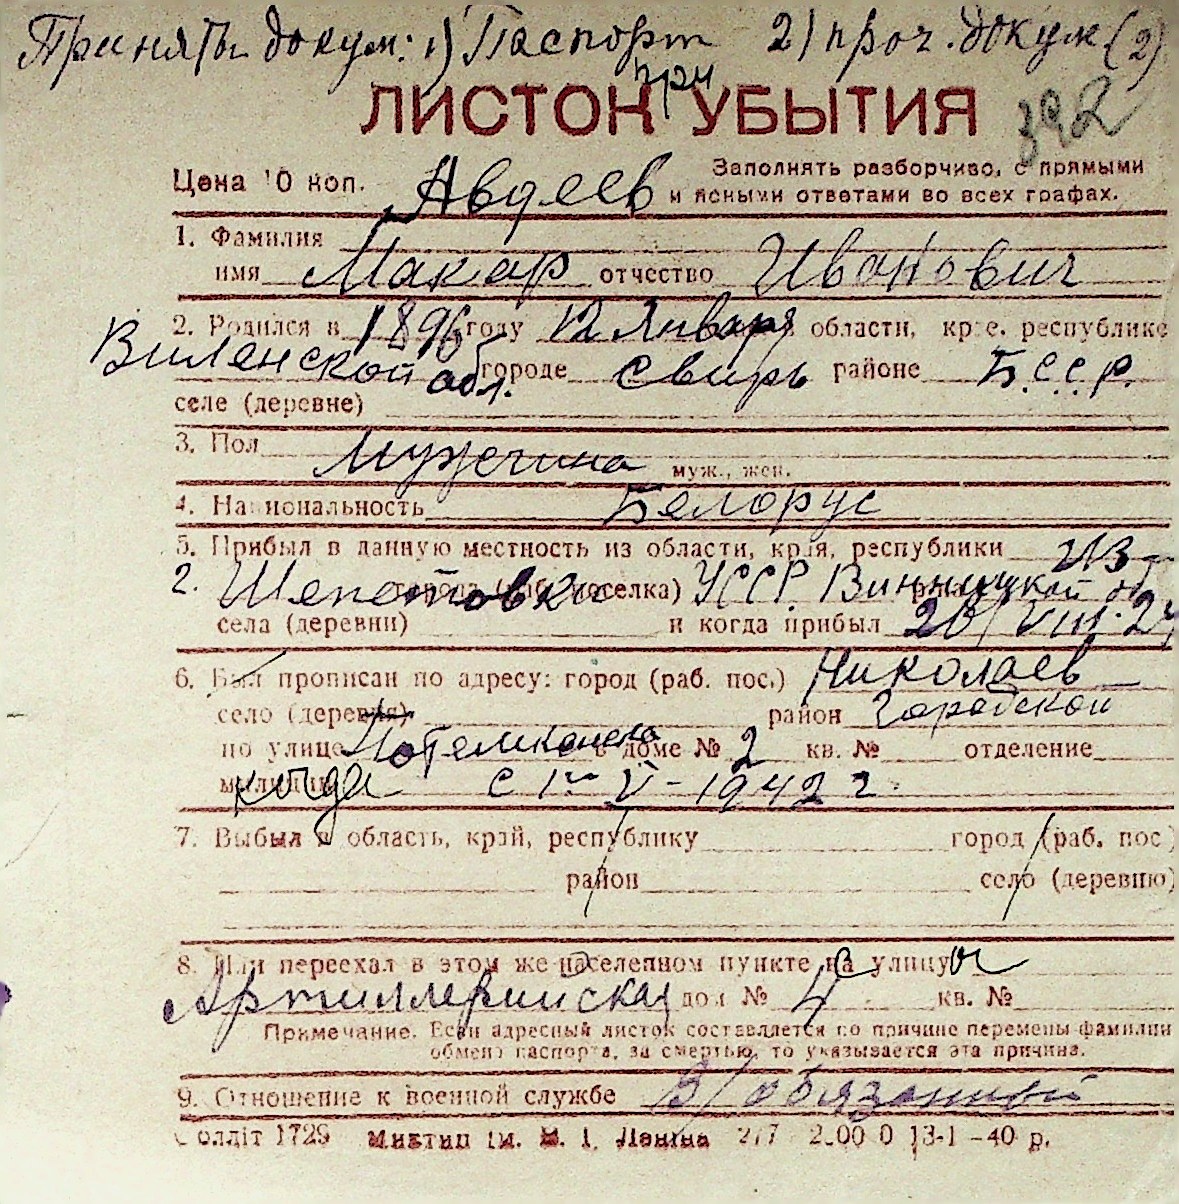 Принять докум: 1) Паспорт 2) проч. докум (2)
при
ЛИСТОК УБЫТИЯ 392
Цена 10 коп. Авдеев Заполнять разборчиво, с прямыми
и ясными ответами во всех графах.
1. Фамилия
имя Макар отчество Иванович
2. Родился в 1896 году 12 Января области, крае, республике
Виленской обл. городе Свирь районе Б.С.С.Р.
селе (деревне)
3. Пол Мужчина муж., жен.
4. Национальность Белорус
5. Прибыл в данную местность из области, края, республики из
2. Шепетовки поселка) УССР. Винницкой об
села (деревни) и когда прибыл 28/VIII-24
6. Был прописан по адресу: город (раб. пос.) Николаев
село (деревня) район Городской
по улице Потемкинска в доме № 2 кв. № отделение
милиции когда с 1го V-1942 г.
7. Выбыл в область, край, республику город (раб. пос)
район село (деревню)
8. Или переехал в этом же населенном пункте на улицу
Артиллерийская дом № 4 кв. №
Примечание. Если адресный листок составляется по причине перемены фамилии
обмена паспорта, за смертью, то указывается эта причина.
9. Отношение к военной службе В/обязанный
олдіт 1729 Миктип ім. В. І. Леніна 277 200 0 13-1-40 р.